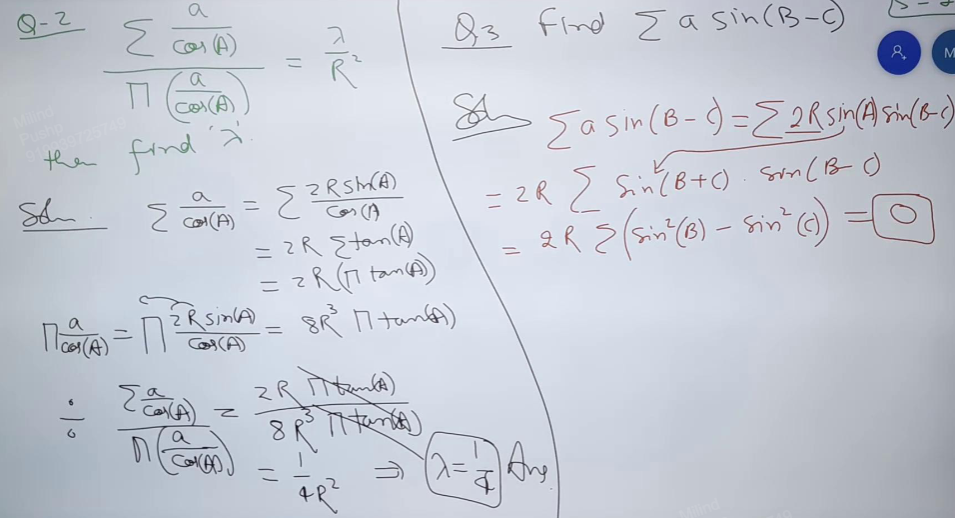 Q-2 Σ a/cos(A) / Π (a/cos(A)) = λ/R²
then find 'λ'.
Soln. Σ a/cos(A) = Σ 2R sin(A)/cos(A)
= 2R Σ tan(A)
= 2R (Π tan(A))
Π a/cos(A) = Π 2R sin(A)/cos(A) = 8R³ Π tan(A)
÷ Σ a/cos(A) / Π (a/cos(A)) = 2R Π tan(A) / 8R³ Π tan(A)
= 1/4R² ⇒ λ = 1/4 Ans.
Q.3 Find Σ a sin(B-C)
Soln Σ a sin(B-C) = Σ 2R sin(A) sin(B-C)
= 2R Σ sin(B+C) . sin(B-C)
= 2R Σ (sin²(B) - sin²(C)) = 0
M